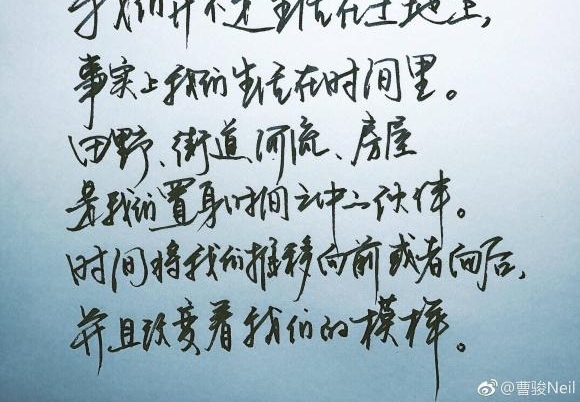 我们并不是生活在土地上，
事实上我们生活在时间里。
田野、街道、河流、房屋
是我们置身时间之中的伙伴。
时间将我们推移向前或者向后，
并且改变着我们的模样。
@曹骏Neil